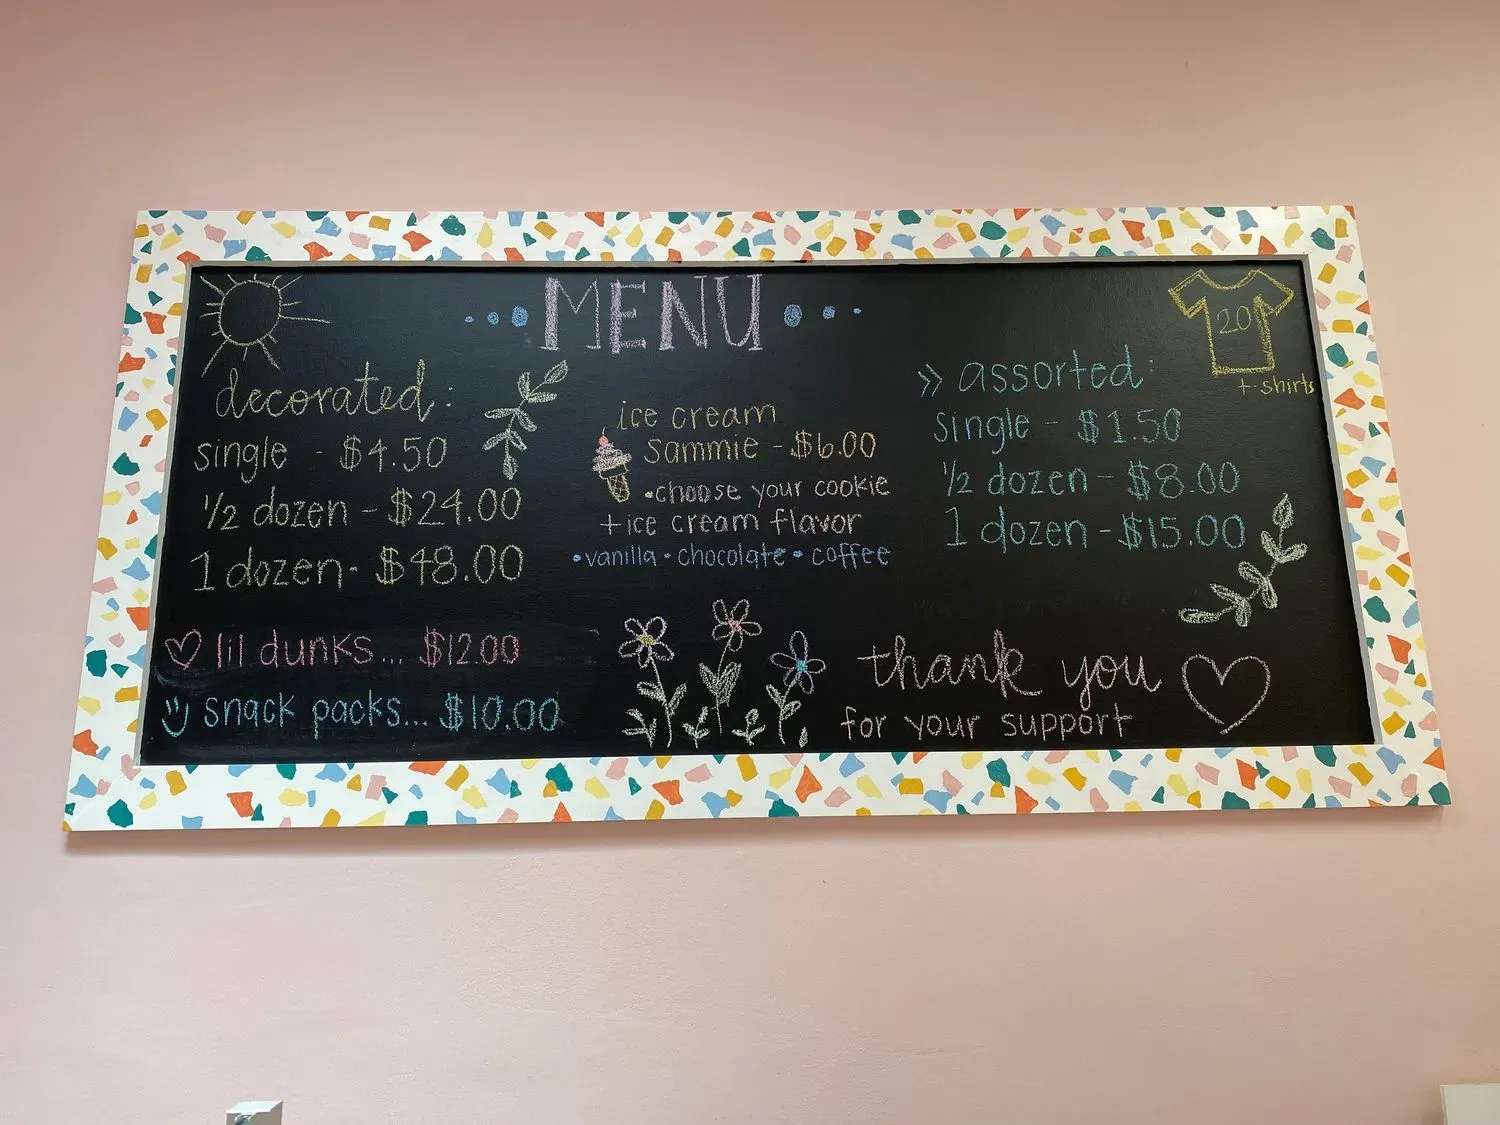 MENU
decorated:
single - $4.50
1/2 dozen - $24.00
1 dozen - $48.00
lil dunks... $12.00
snack packs... $10.00
ice cream
sammie - $6.00
•choose your cookie
+ice cream flavor
•vanilla •chocolate •coffee
>> assorted:
single - $1.50
1/2 dozen - $8.00
1 dozen - $15.00
20
t-shirts
thank you
for your support